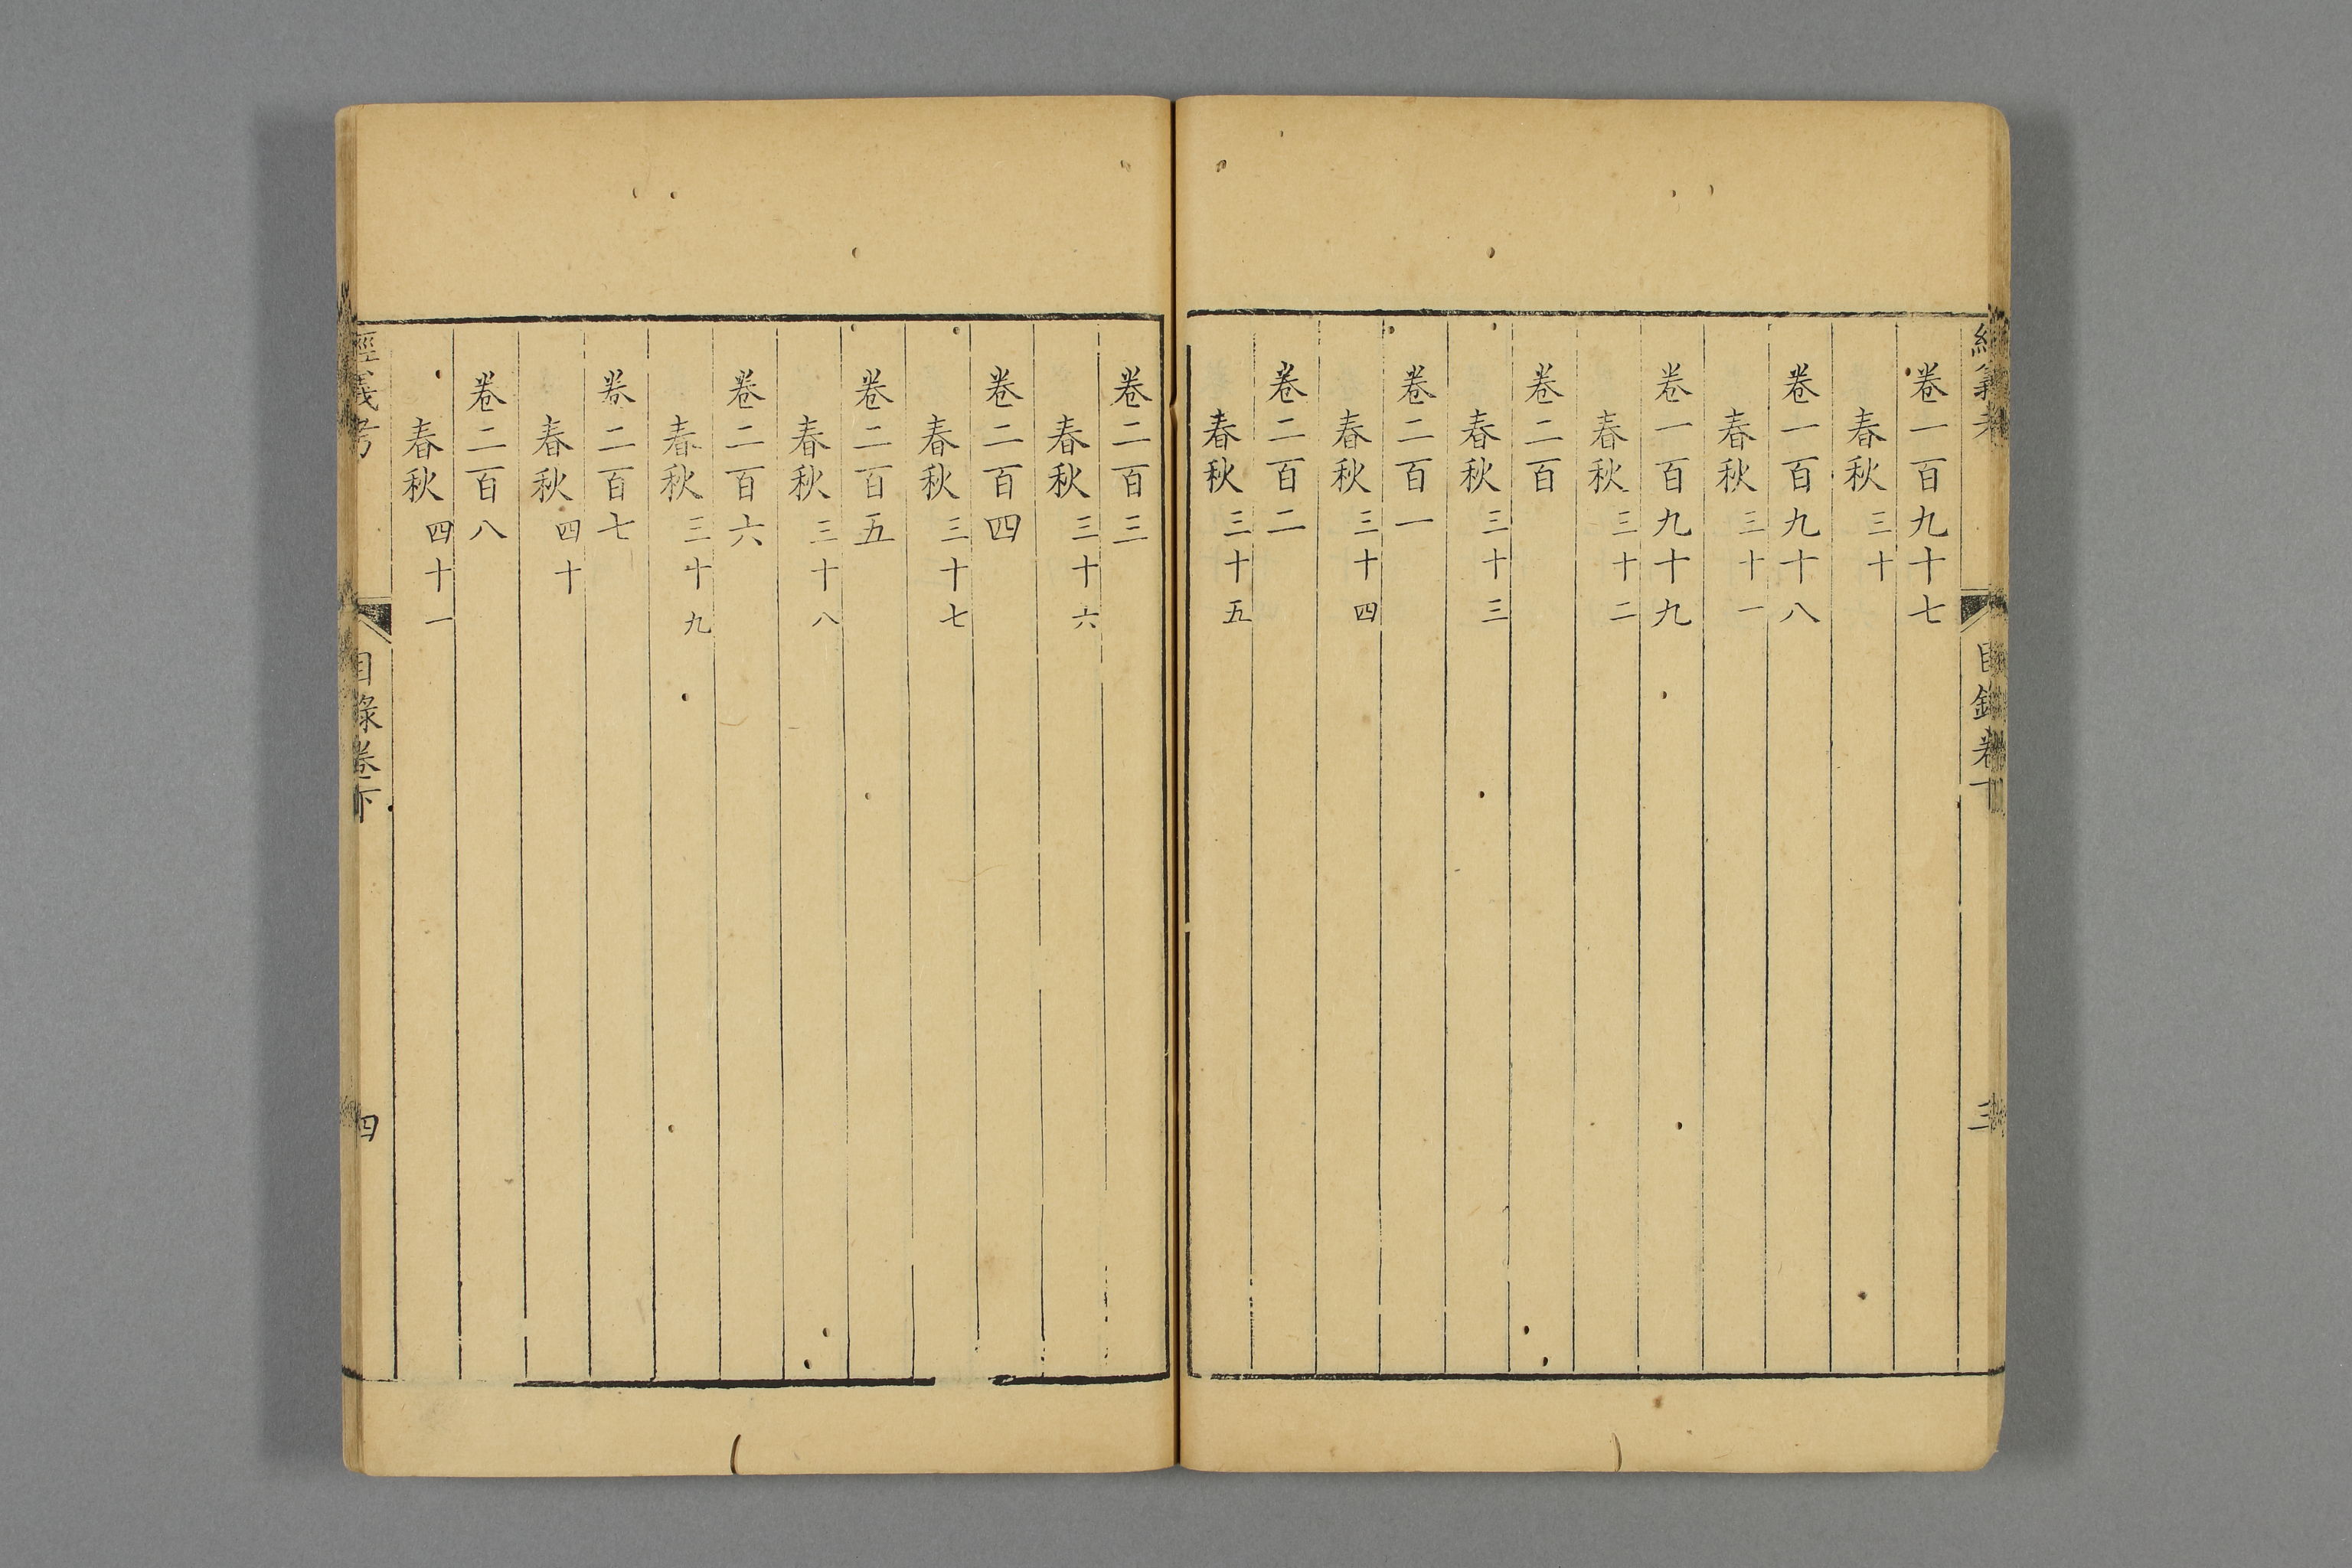 經義考
目錄卷下
三
卷一百九十七
春秋三十
卷一百九十八
春秋三十一
卷一百九十九
春秋三十二
卷二百
春秋三十三
卷二百一
春秋三十四
卷二百二
春秋三十五
卷二百三
春秋三十六
卷二百四
春秋三十七
卷二百五
春秋三十八
卷二百六
春秋三十九
卷二百七
春秋四十
卷二百八
春秋四十一
經義考
目錄卷下
四